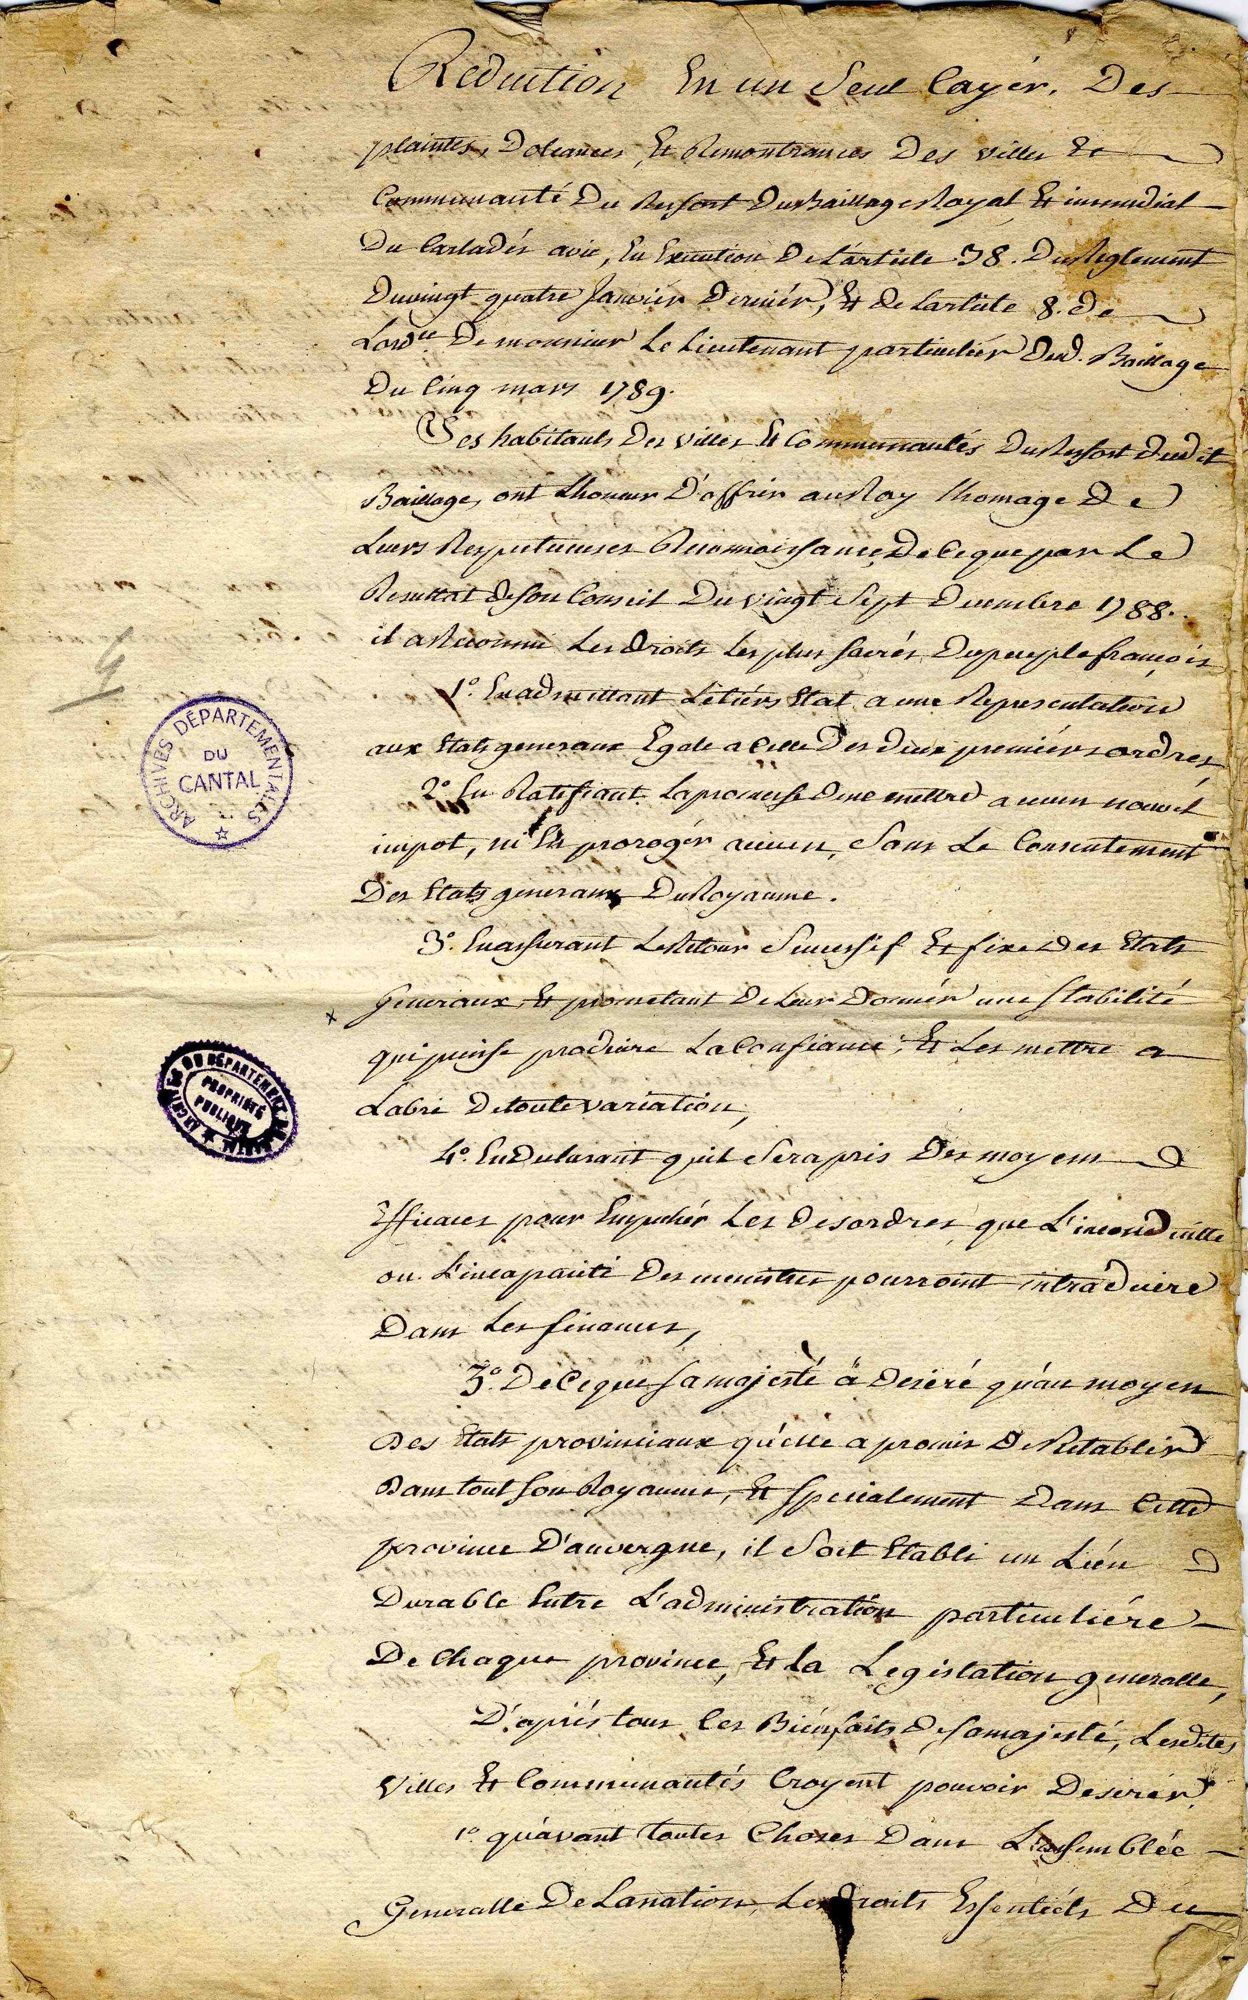 Reduction En un Seul Cayér, Des
plaintes, Doleances, Et Remontrances Des villes Et
Communauté Du Ressort Du Baillage Royal Et immediat
Du Carladés avic, En Execution De L'article 38. Du Reglement
Du vingt quatre Janvier Derniér, Et de Lartiale 8. de
Lordce De monsieur Le Lieutenant particuliér Dud. Baillage
Du Cinq mars 1789.
Les habitants Des villes Et Communautés Du Ressort Dudit
Baillage, ont Lhonneur D'offrir au Roy Lhomage De
Leurs Respectueuses Reconnoissance, De Ceque par Le
Resultat de son Conseil Du vingt Sept Decembre 1788.
il a Reconnu Les Droits Les plus Sacrés Du peuple françois
1º. En admettant Le tiérs Etat a une Representation
aux Etats generaux Egale a Celle Des Deux premiérs ordres,
2º. En Ratifiant La promesse De ne mettre aucun nouvel
impot, ni En prorogér aucun, Sans Le Consentement
Des Etats generaux Du Royaume.
3º. En assurant Le Retour Successif Et fixe Des Etats
Generaux Et prometant De Leur Donnér une Stabilité
qui puisse produire La Confiance, Et Les mettre a
x
Labri De toute variation,
4º. En Declarant quil Sera pris Des moyens
Efficaces pour Empechér Les Desordres que L'inconduitte
ou L'incapacité Des ministres pourroint introduire
Dans Les finances,
3º. De Ceque Sa majesté á Deséré qu'au moyen
Des Etats provinciaux qu'elle a promis De Retablir
Dans tout Son Royaume, Et Specialement Dans Cette
province D'auvergne, il Soit Etabli un Lién
Durable Entre L'administration particuliére
De Chaque province, Et La Legislation generalle,
D'aprés tous Ces Biénfaits De Sa majesté, Lesdites
Villes Et Communautés Croyent pouvoir Desirér,
1º. qu'avant toutes Choses Dans L'assemblée
Generalle De La nation, Les Droits Essentiéls Du
ARCHIVES DÉPARTEMENTALES
DU
CANTAL
ARCHIVES DU DÉPARTEMENT DU CANTAL
PROPRIÉTÉ
PUBLIQUE